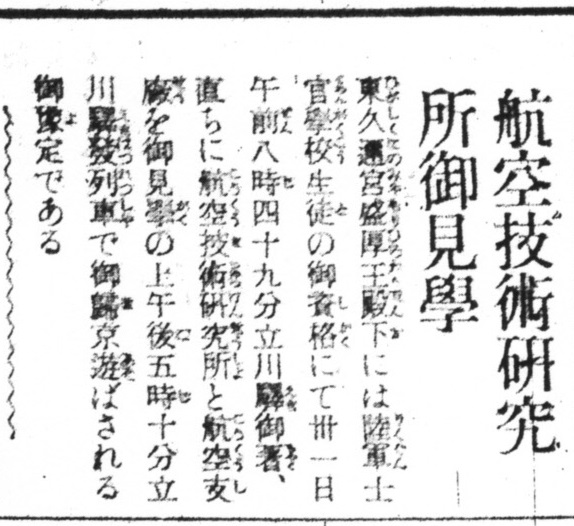 航空技術研究
所御見學
東久邇宮盛厚王殿下には陸軍士
官學校生徒の御資格にて卅一日
午前八時四十九分立川驛御著、
直ちに航空技術研究所と航空支
廠を御見學の上午後五時十分立
川驛發列車で御歸京遊ばされる
御豫定である